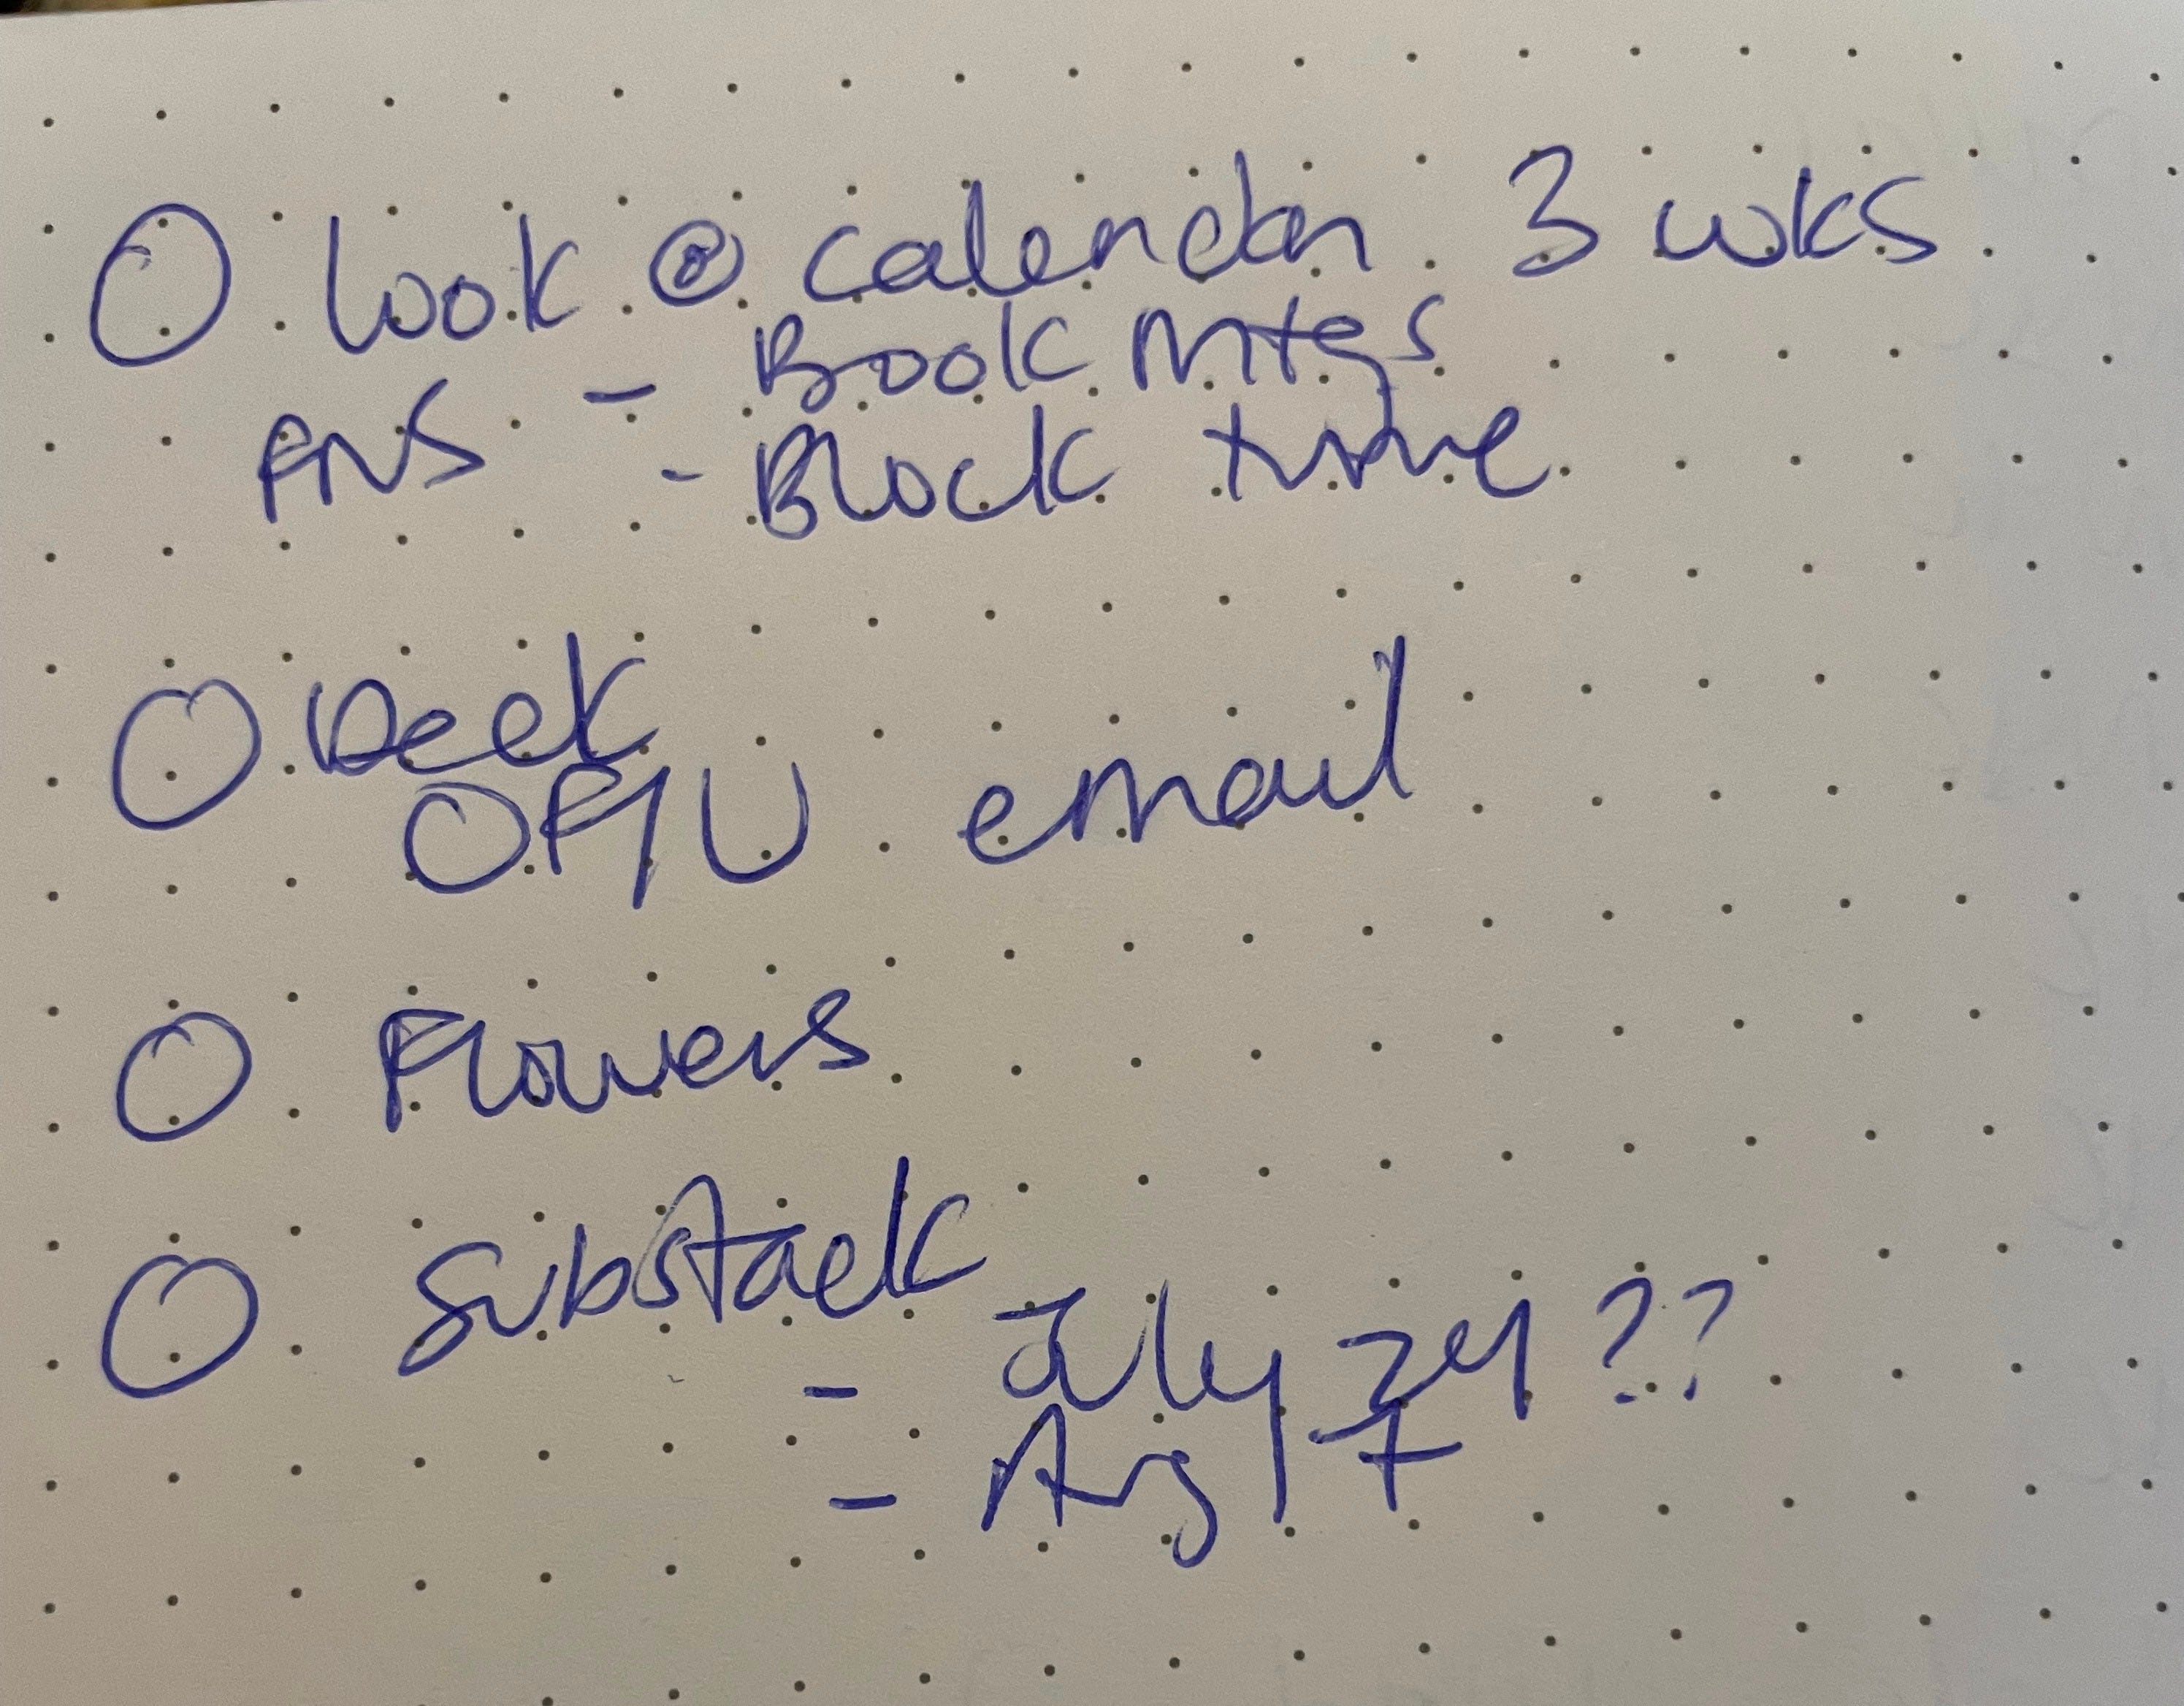 O look @ calendar 3 wks
- Book Mtgs
- Block time
O Deck
O F/U email
O Flowers
O Substack
- July 24??
- Aug 7